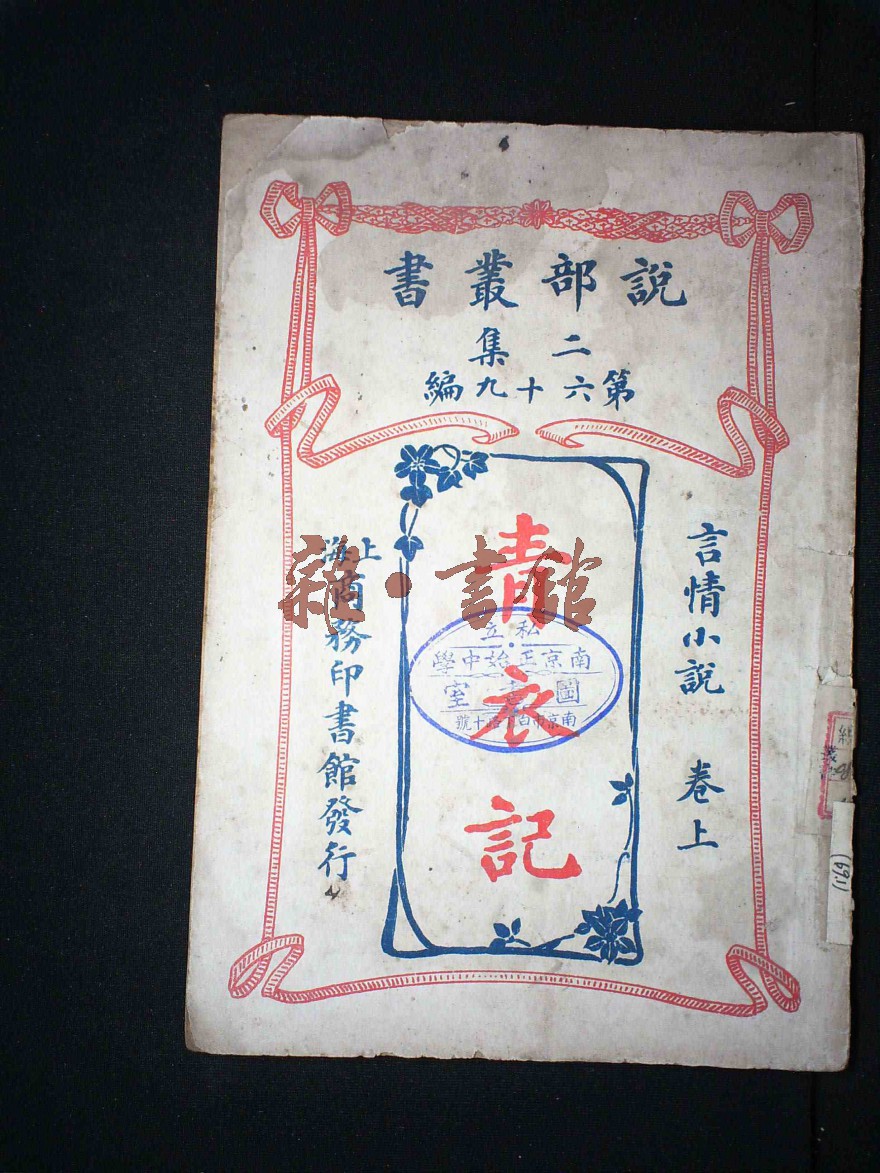 說部叢書
二集
第六十九編
言情小說 卷上
青衣記
上海商務印書館發行
私立
南京正始中學
圖書室
雜·書館
(69.1)